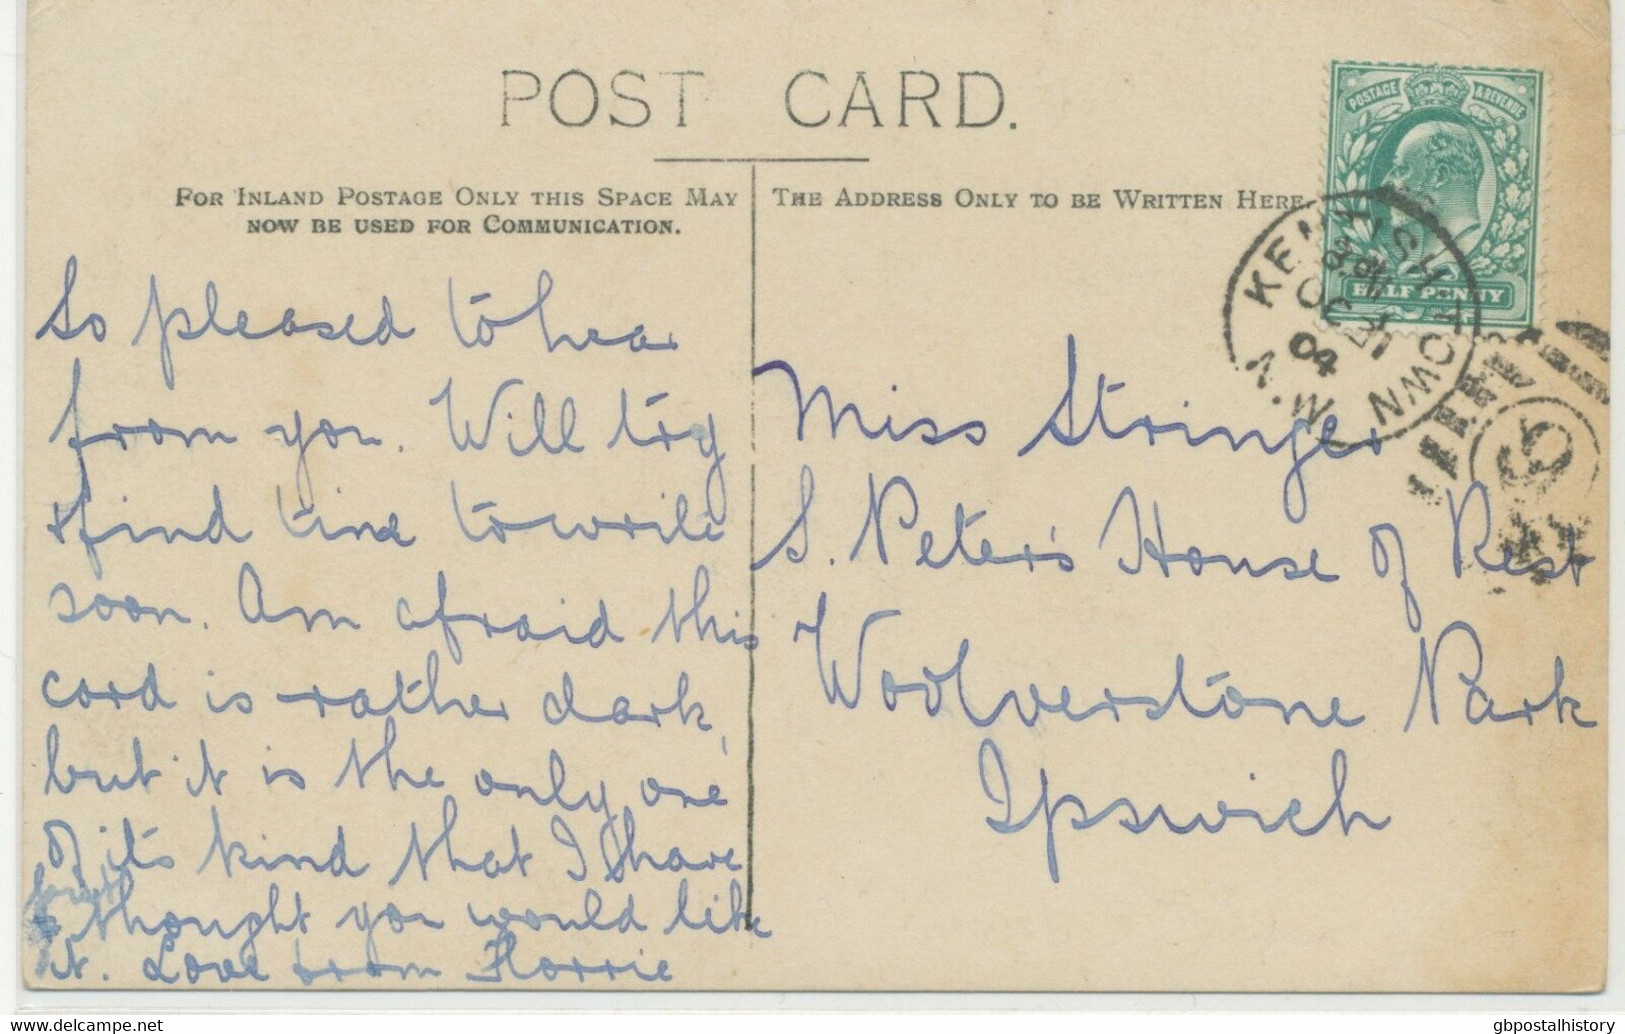 POST CARD.
FOR INLAND POSTAGE ONLY THIS SPACE MAY
NOW BE USED FOR COMMUNICATION.
THE ADDRESS ONLY TO BE WRITTEN HERE.
POSTAGE & REVENUE
HALF PENNY
KENTISH TOWN N.W.
OC 31
04
So pleased to hear
from you. Will try
& find time to write
soon. Am afraid this
card is rather dark,
but it is the only one
of its kind that I have
& thought you would like
it. Love from Florrie
Miss Stringer
S. Peter's House of Rest
Woolverstone Park
Ipswich
delcampe.net
gbpostalhistory